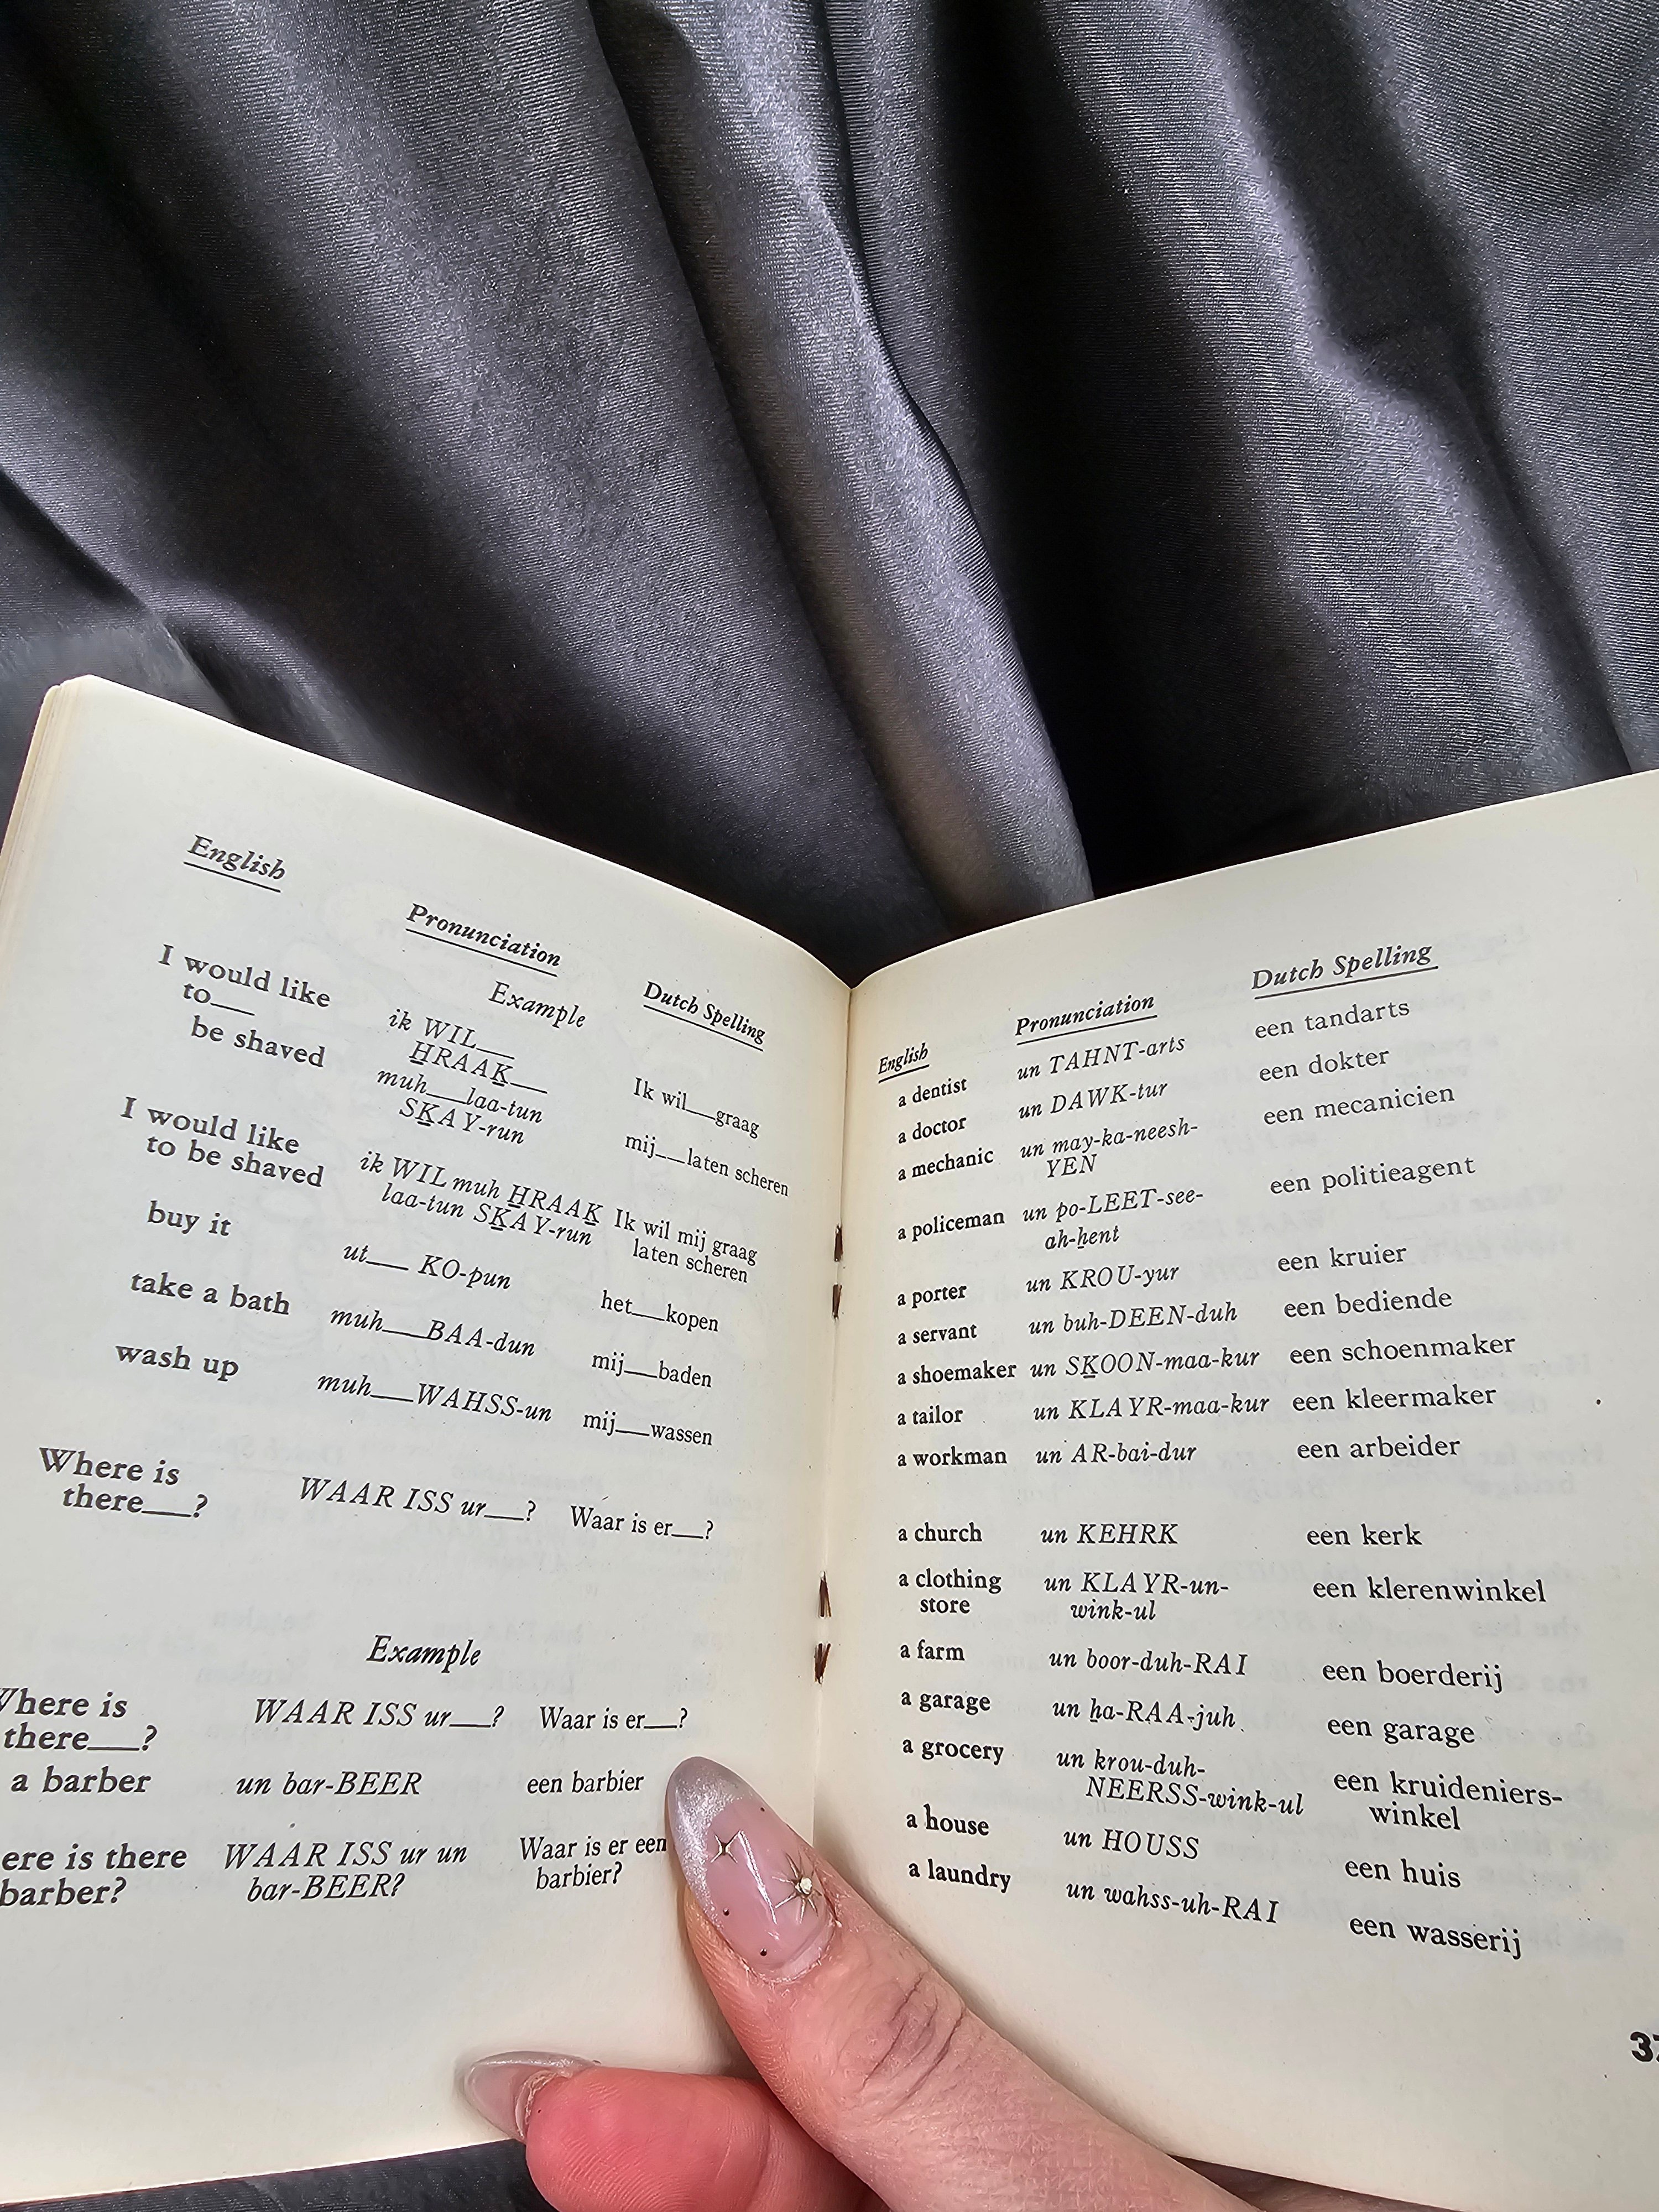 English Pronunciation Dutch Spelling
Example
I would like ik WIL___ Ik wil___graag
to___ HRAAK___
be shaved muh___laa-tun mij___laten scheren
SKAY-run
I would like ik WIL muh HRAAK Ik wil mij graag
to be shaved laa-tun SKAY-run laten scheren
buy it ut___ KO-pun het___kopen
take a bath muh___BAA-dun mij___baden
wash up muh___WAHSS-un mij___wassen
Where is WAAR ISS ur___? Waar is er___?
there___?
Example
is WAAR ISS ur___? Waar is er___?
there___?
a barber un bar-BEER een barbier
is there WAAR ISS ur un Waar is er een
barber? bar-BEER? barbier?
English Pronunciation Dutch Spelling
a dentist un TAHNT-arts een tandarts
a doctor un DAWK-tur een dokter
a mechanic un may-ka-neesh- een mecanicien
YEN
a policeman un po-LEET-see- een politieagent
ah-hent
a porter un KROU-yur een kruier
a servant un buh-DEEN-duh een bediende
a shoemaker un SKOON-maa-kur een schoenmaker
a tailor un KLAYR-maa-kur een kleermaker
a workman un AR-bai-dur een arbeider
a church un KEHRK een kerk
a clothing un KLAYR-un- een klerenwinkel
store wink-ul
a farm un boor-duh-RAI een boerderij
a garage un ha-RAA-juh een garage
a grocery un krou-duh- een kruideniers-
NEERSS-wink-ul winkel
a house un HOUSS een huis
a laundry un wahss-uh-RAI een wasserij